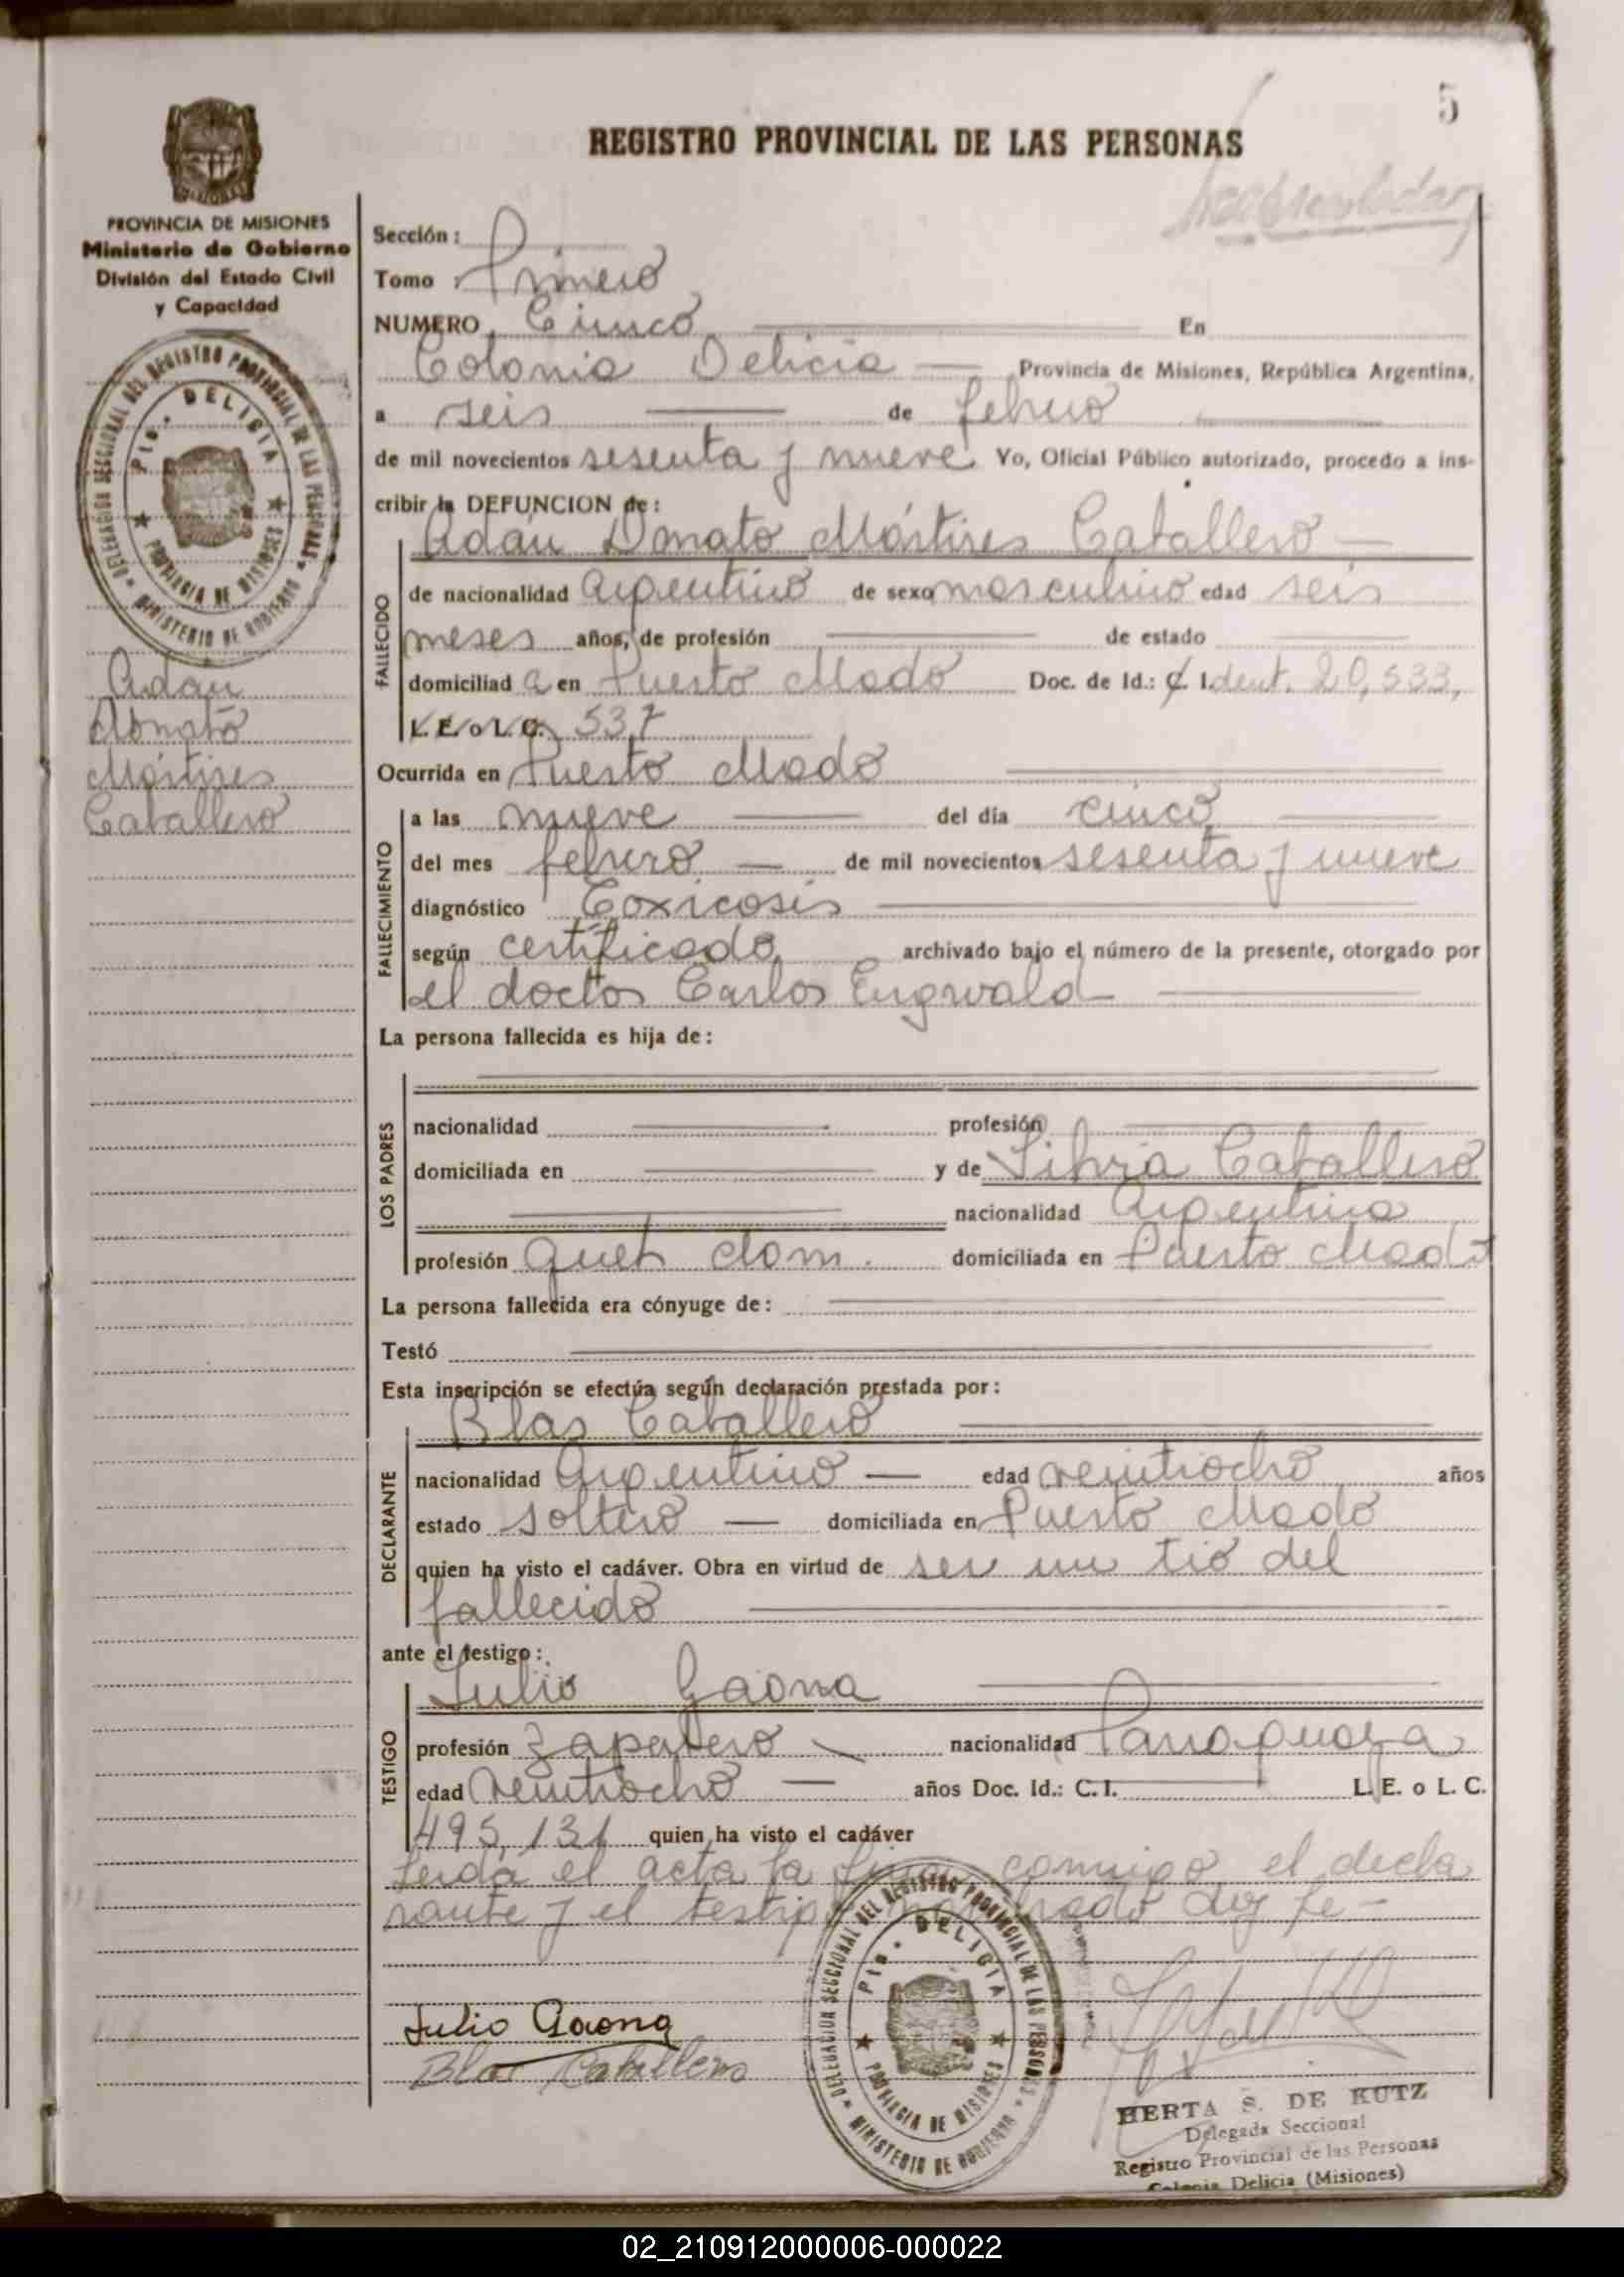 5
REGISTRO PROVINCIAL DE LAS PERSONAS
PROVINCIA DE MISIONES
Ministerio de Gobierno
División del Estado Civil
y Capacidad
DELEGACION SECCIONAL DEL REGISTRO PROVINCIAL DE LAS PERSONAS
PTO. DELICIA
PROVINCIA DE MISIONES
MINISTERIO DE GOBIERNO
Adán
Donato
Mártires
Caballero
Sección:
Tomo Primero
NUMERO Cinco En
Colonia Delicia Provincia de Misiones, República Argentina,
a seis de febrero
de mil novecientos sesenta y nueve Yo, Oficial Público autorizado, procedo a ins-
cribir la DEFUNCION de:
Adán Donato Mártires Caballero
FALLECIDO
de nacionalidad Argentino de sexo masculino edad seis
meses años, de profesión de estado
domiciliad a en Puerto Mado Doc. de Id.: C. I. dent. 20,533,
L. E. o L. C. 537
Ocurrida en Puerto Mado
FALLECIMIENTO
a las nueve del día cinco
del mes febrero de mil novecientos sesenta y nueve
diagnóstico Toxicosis
según certificado archivado bajo el número de la presente, otorgado por
el doctor Carlos Engwald
La persona fallecida es hija de:
LOS PADRES
nacionalidad profesión
domiciliada en y de Silvia Caballero
nacionalidad Argentina
profesión queh dom. domiciliada en Puerto Mado
La persona fallecida era cónyuge de:
Testó
Esta inscripción se efectúa según declaración prestada por:
Blas Caballero
DECLARANTE
nacionalidad Argentino edad veintiocho años
estado soltero domiciliada en Puerto Mado
quien ha visto el cadáver. Obra en virtud de ser un tio del
fallecido
ante el testigo:
Julio Gaona
TESTIGO
profesión Zapatero nacionalidad Paraguaya
edad veintiocho años Doc. Id.: C. I. L. E. o L. C.
495,131 quien ha visto el cadáver
Leida el acta la firma conmigo el decla
rante y el testigo doy fe-
DELEGACION SECCIONAL DEL REGISTRO PROVINCIAL DE LAS PERSONAS
PTO. DELICIA
PROVINCIA DE MISIONES
MINISTERIO DE GOBIERNO
Julio Gaona
Blas Caballero
HERTA S. DE KUTZ
Delegada Seccional
Registro Provincial de las Personas
Colonia Delicia (Misiones)
02_210912000006-000022